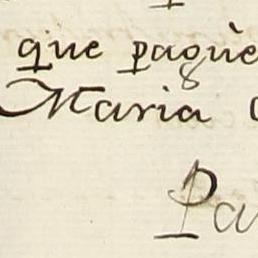 que pagùe
Maria
Pa